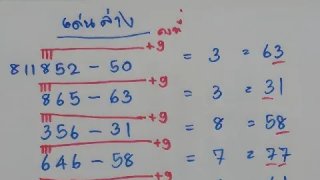 เด่นล่าง
คงที่
+9
811852 - 50 = 3 = 63
+9
865 - 63 = 3 = 31
+9
356 - 31 = 8 = 58
+9
646 - 58 = 7 = 77